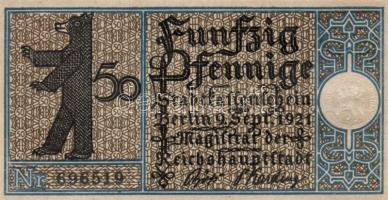 Funfzig
50 Pfennige
Stadtkassenschein
Berlin 9. Sept. 1921
Magistrat der
Reichshauptstadt
Nr. 696519